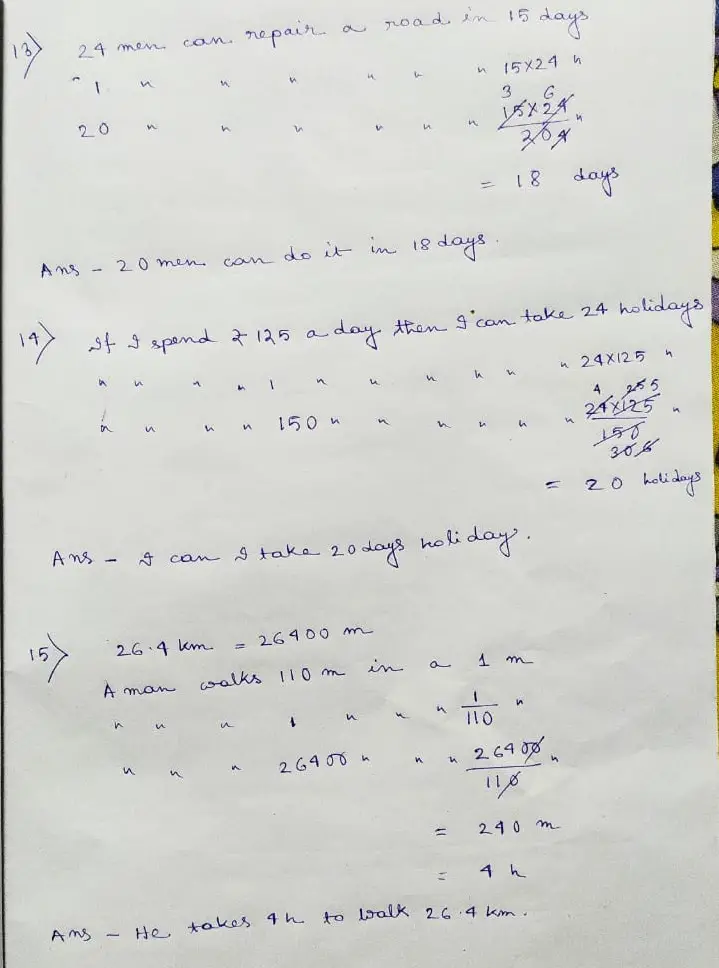 13) 24 men can repair a road in 15 days
" 1 " " " " " " 15×24 "
3 6
20 " " " " " " 15×24 "
20 4
= 18 days
Ans - 20 men can do it in 18 days.
14) If I spend ₹ 125 a day then I can take 24 holidays
" " " " 1 " " " " " " 24×125 "
4 25 5
" " " " 150 " " " " " " 24×125 "
150
30 6
= 20 holidays
Ans - I can I take 20 days holiday.
15) 26.4 km = 26400 m
A man walks 110 m in a 1 m
" " " 1 " " " 1/110 "
" " " 26400 " " " 26400 "
110
= 240 m
= 4 h
Ans - He takes 4h to walk 26.4 km.